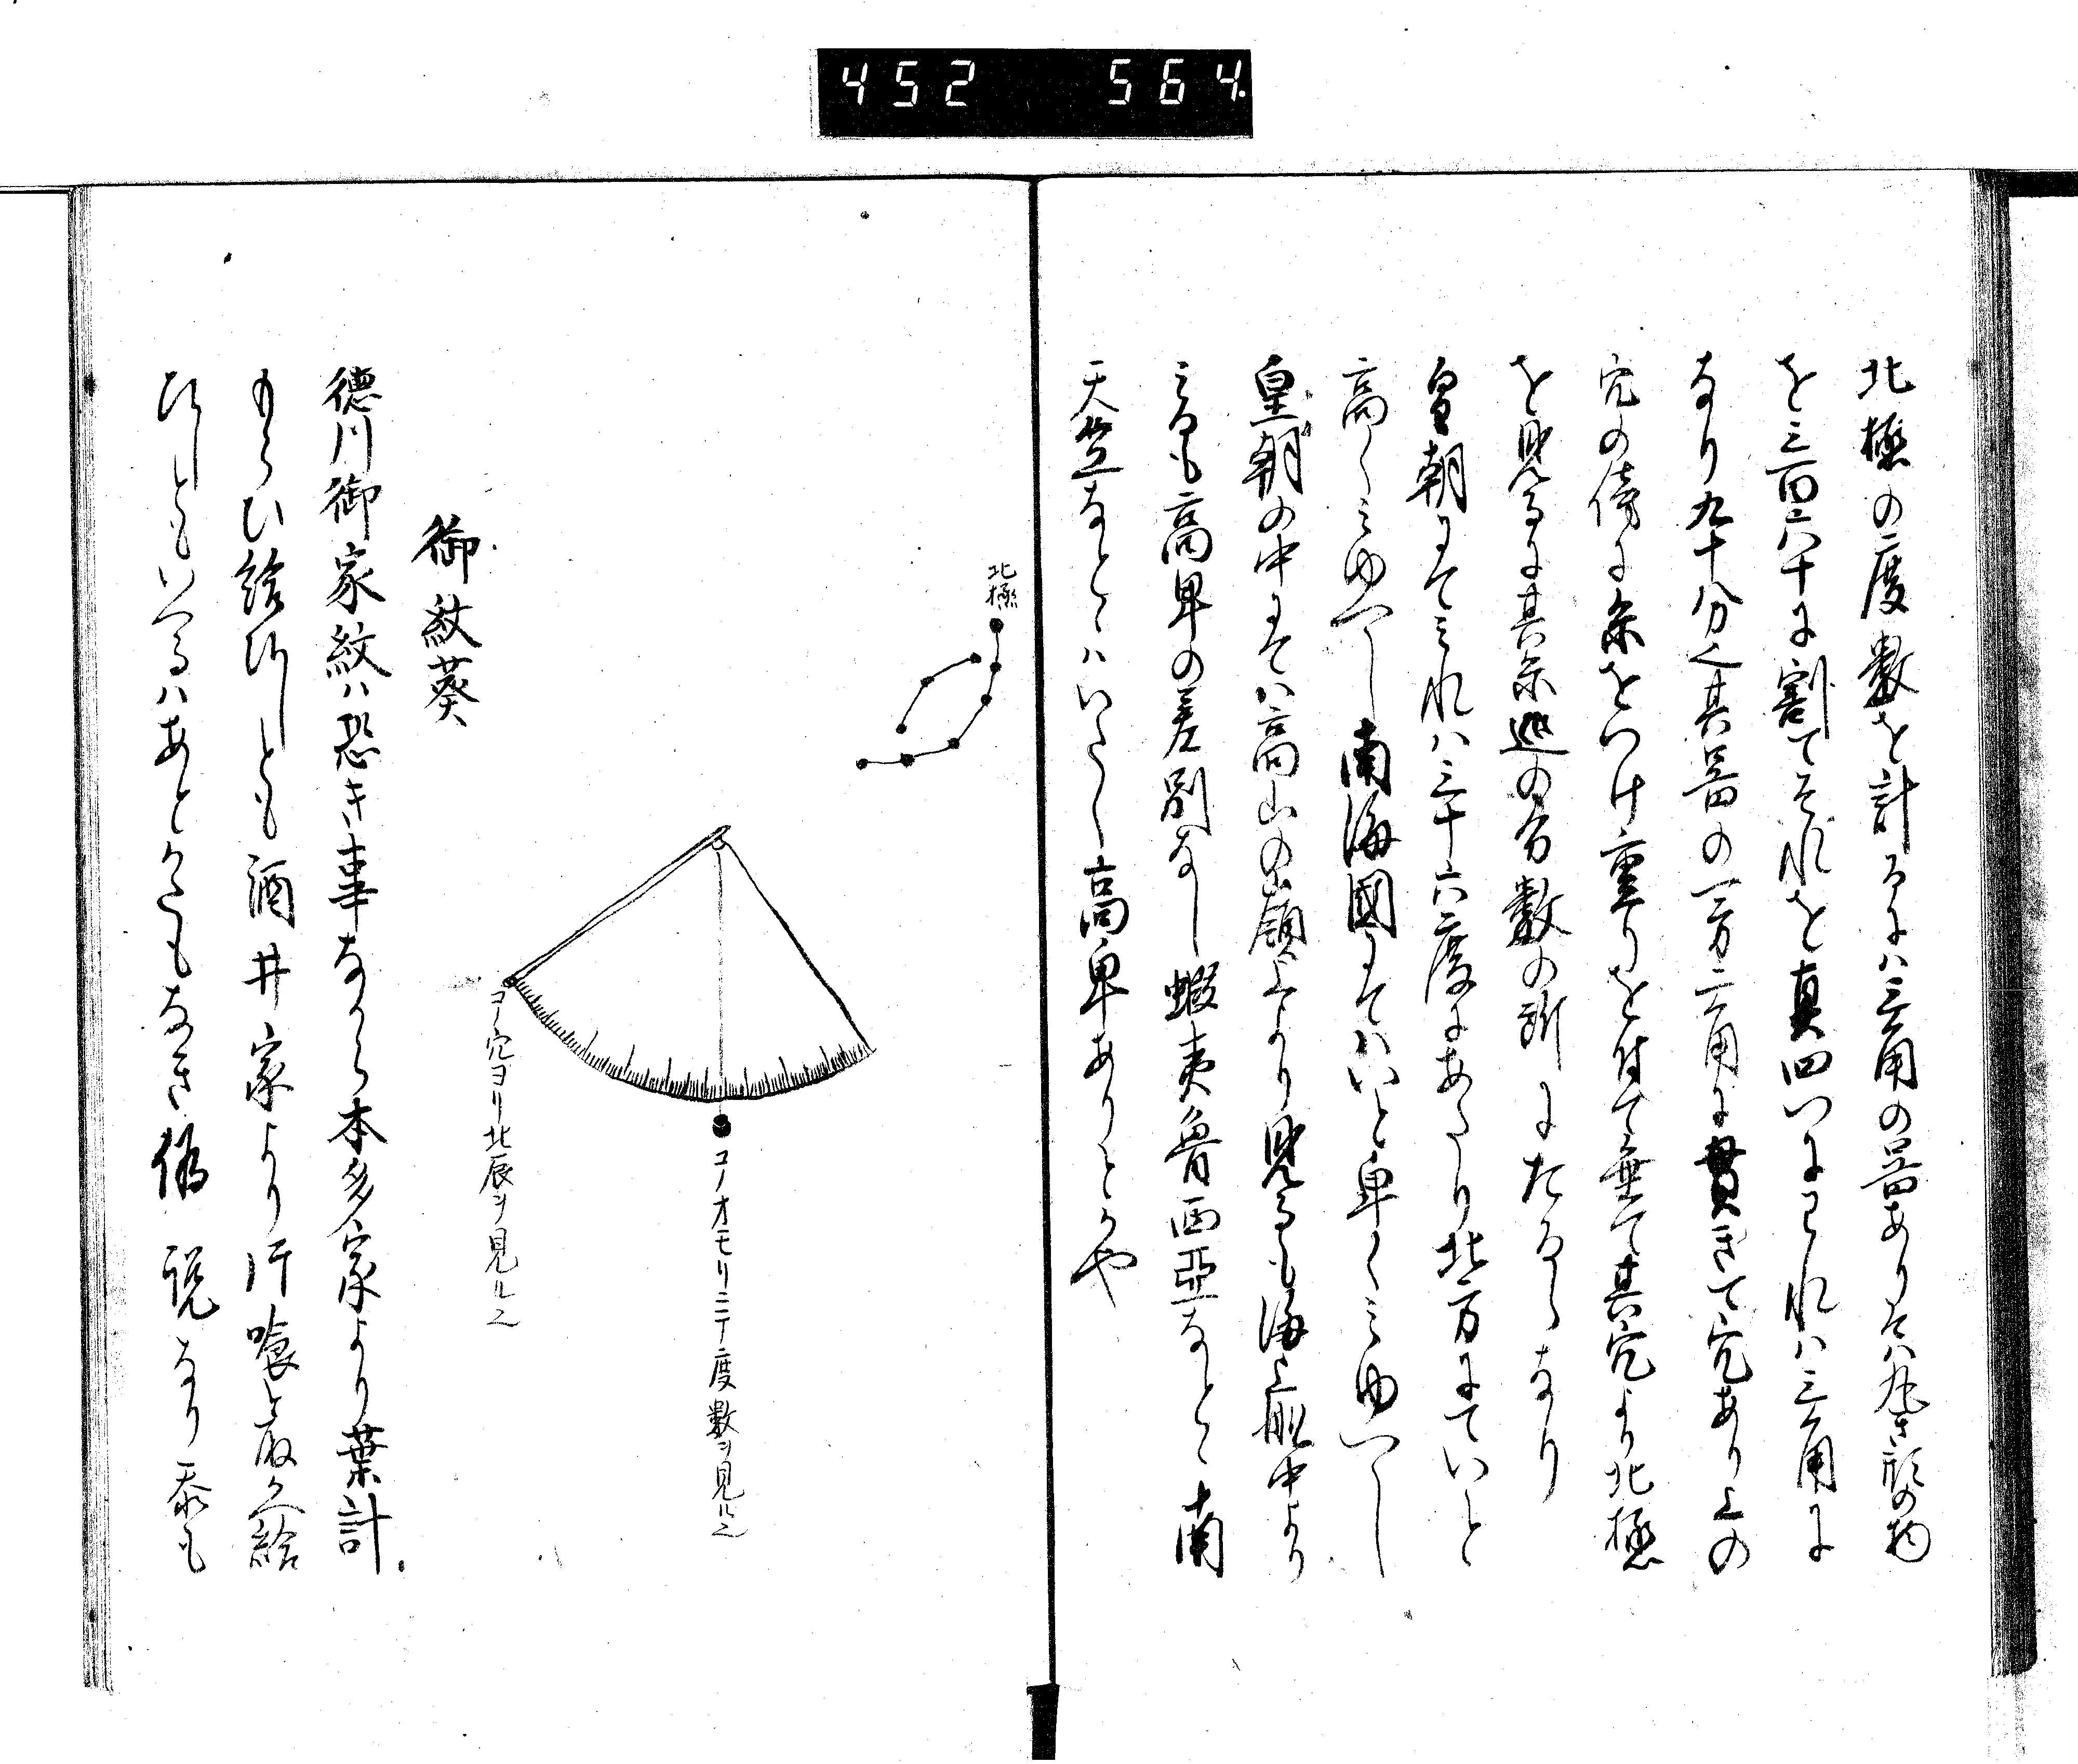 452 564
北極の度数を計るには三角の器ありそは丸き形の物
を三百六十に割てそれを真四つにわれは三角に
なり九十分也其器の一方二角に貫きて穴あり上の
穴の傍に糸をつけ重りを付て垂て其穴より北極
を見るに其糸必の分数の所にたるゝなり
皇朝にてみれは三十六度にあたり北方にていと
高くみゆへし南海國にてはいと卑くみゆへし
皇朝の中にては高山の嶺上より見るも海上舩中より
みるも高卑の差別なし蝦夷魯西亜なとゝ南
天竺なとゝはいたく高卑ありとかや
北極
コノオモリニテ度数ヲ見ル也
コノ穴ヨリ北辰ヲ見ル也
御紋葵
徳川御家紋ハ恐キ事なから本多家より葉計
もらひ給ひしとも酒井家より片喰と取かへ給
ひしともいへるはあとかたもなき偽説なり泰も